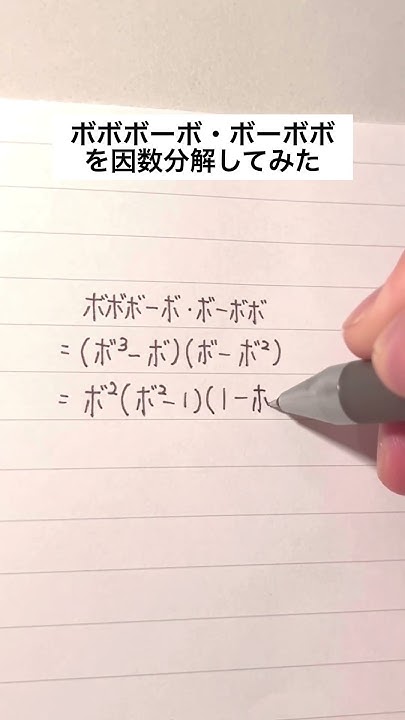 ボボボーボ・ボーボボ
を因数分解してみた
ボボボーボ・ボーボボ
=(ボ³-ボ)(ボ-ボ²)
=ボ²(ボ²-1)(1-ホ